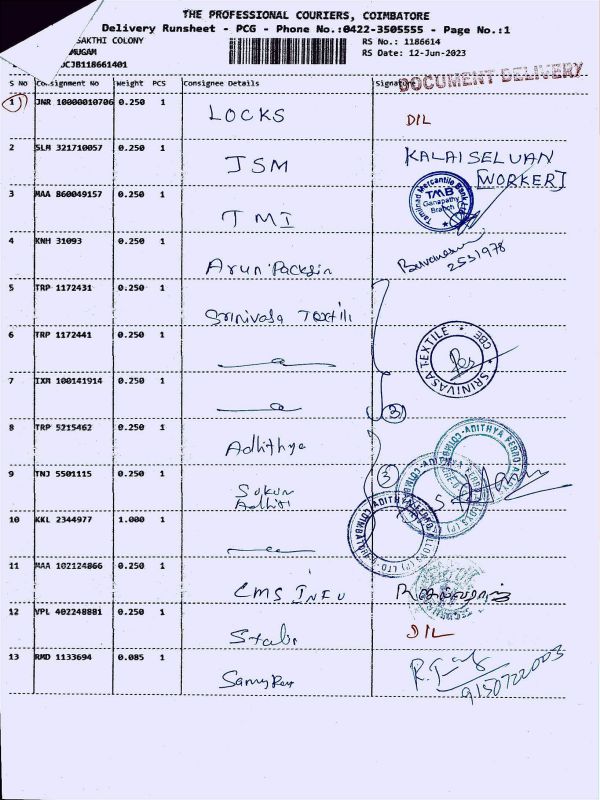 THE PROFESSIONAL COURIERS, COIMBATORE
Delivery Runsheet - PCG - Phone No.:0422-3505555 - Page No.:1
SAKTHI COLONY
RS No.: 1186614
RS Date: 12-Jun-2023
S No Consignment No Weight PCS Consignee Details Signature
DOCUMENT DELIVERY
1 JNR 10000010706 0.250 1 LOCKS DIL
2 SLM 321710057 0.250 1 JSM KALAISELVAN
[WORKER]
3 MAA 860049157 0.250 1 TMI
Tamilnad Mercantile Bank Ltd
TMB
Ganapathy
Branch
4 KNH 31093 0.250 1 Arun Packgin
2531978
5 TRP 1172431 0.250 1 Srinivasa Textili
6 TRP 1172441 0.250 1
SRINIVASA TEXTILE * CBE *
7 IXM 100141914 0.250 1
3
8 TRP 5215462 0.250 1 Adhithya
9 TNJ 5501115 0.250 1
3
10 KKL 2344977 1.000 1
11 MAA 102124866 0.250 1 CMS INFO
12 VPL 402248881 0.250 1 DIL
13 RMD 1133694 0.085 1
9150722003